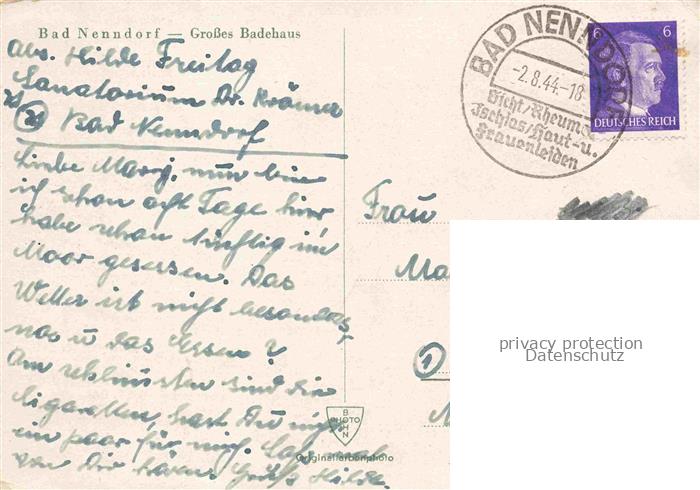 Bad Nenndorf — Großes Badehaus
Abs. Hilde Freitag
Sanatorium Dr. Krämer
Bad Nenndorf
Liebe Marg. nun bin
ich schon acht Tage hier
habe schon tüchtig im
Moor gesessen. Das
Wetter ist nicht besonders
was u das Essen?
Am schlimsten sind die
Zigaretten, hast Du nicht
ein paar für mich. Lass mal
von Dir hören. Gruß Hilde.
PHOTO
Originalfarbenphoto
BAD NENNDORF
-2.8.44.-18
Gicht/Rheuma
Ischias/Haut-u.
Frauenleiden
6 6
DEUTSCHES REICH
Frau
Ma
1
privacy protection
Datenschutz